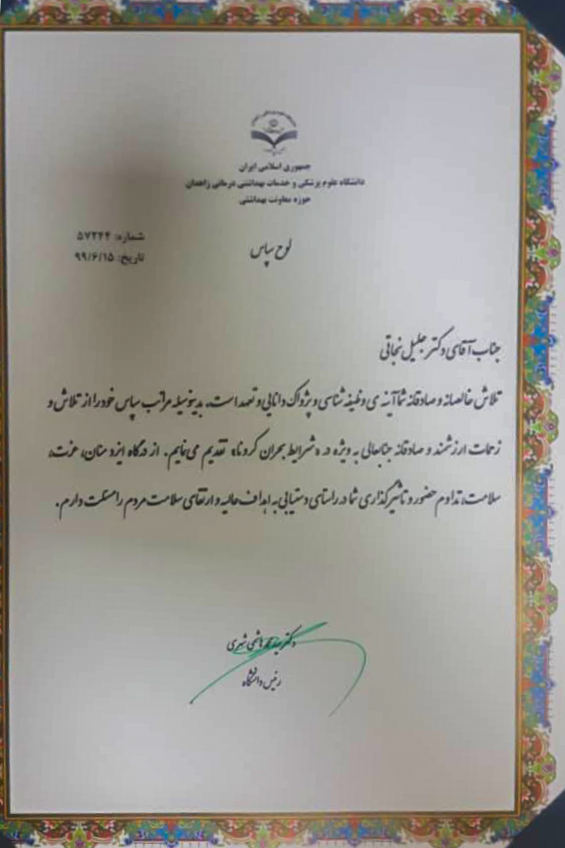 جمهوری اسلامی ایران
دانشگاه علوم پزشکی و خدمات بهداشتی درمانی زاهدان
حوزه معاونت بهداشتی
شماره: ۵۷۲۴۴
تاریخ: ۹۹/۶/۱۵
لوح سپاس
جناب آقای دکتر جلیل نجاتی
تلاش خالصانه و صادقانه شما آئینه ی وظیفه شناسی و پژواک دانایی و تعهد است. بدینوسیله مراتب سپاس خود را از تلاش و
زحمات ارزشمند و صادقانه جنابعالی به ویژه در «شرایط بحران کرونا» تقدیم می نمایم. از درگاه ایزد منان، عزت،
سلامت، تداوم حضور و تاثیرگذاری شما در راستای دستیابی به اهداف عالیه و ارتقای سلامت مردم را مسئلت دارم.
دکتر سید محمد هاشمی شهری
رئیس دانشگاه